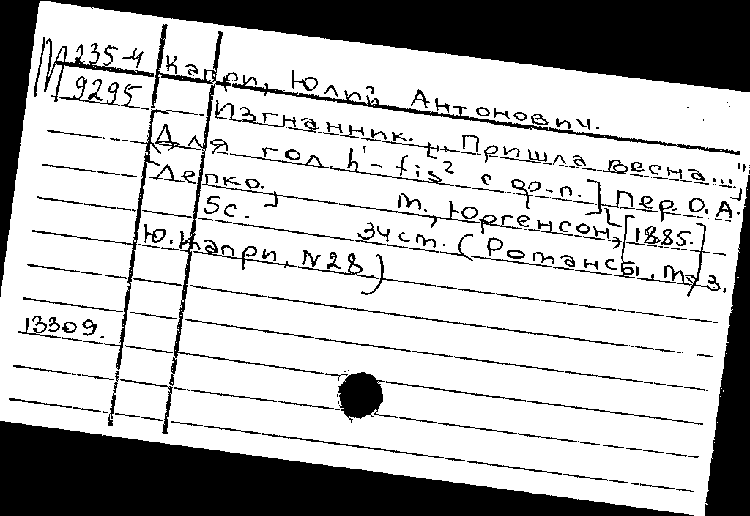 М 235-4
9295
Капри, Юлий Антонович.
Изгнанник. „Пришла весна..."
[Для гол. h'-fis² с ф-п.] Пер. О.А.
Лепко.]
М., Юргенсон, [1885.]
5с. 34ст. (Романсы. Муз.
Ю. Капри, №28)
13309.